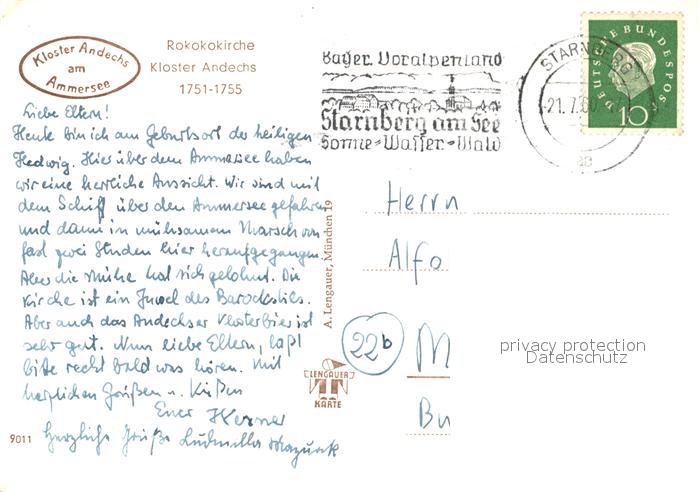 Kloster Andechs
am
Ammersee
Rokokokirche
Kloster Andechs
1751-1755
Liebe Eltern!
Heute bin ich am Geburtsort der heiligen
Hedwig. Hier über dem Ammersee haben
wir eine herrliche Aussicht. Wir sind mit
dem Schiff über den Ammersee gefahren
und dann in mühsamem Marsch von
fast zwei Stunden hier heraufgegangen.
Aber die Mühe hat sich gelohnt. Die
Kirche ist ein Juwel des Barockstils.
Aber auch das Andechser Klosterbier ist
sehr gut. Nun liebe Eltern, laßt
bitte recht bald was hören. Mit
herzlichen Grüßen u. Küßen
Euer Werner
Herzliche Grüße Ludmilla Mazurek
9011
A. Lengauer, München 19
LENGAUER
KARTE
Bayer. Voralpenland
Starnberg am See
Sonne-Wasser-Wald
STARNBERG
21.7.60
DEUTSCHE BUNDESPOST
10
Herrn
Alfo
22b
M
Bu
privacy protection
Datenschutz